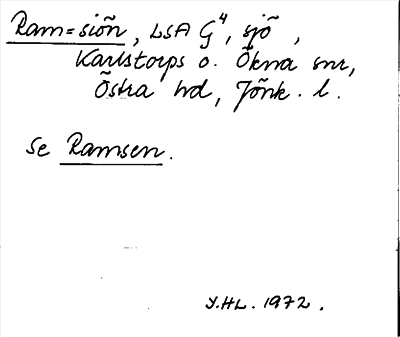 Ram=siön, LSA G4, sjö,
Karlstorps o. Ökna snr,
Östra hd, Jönk. l.
Se Ramsen.
Y.HL. 1972.